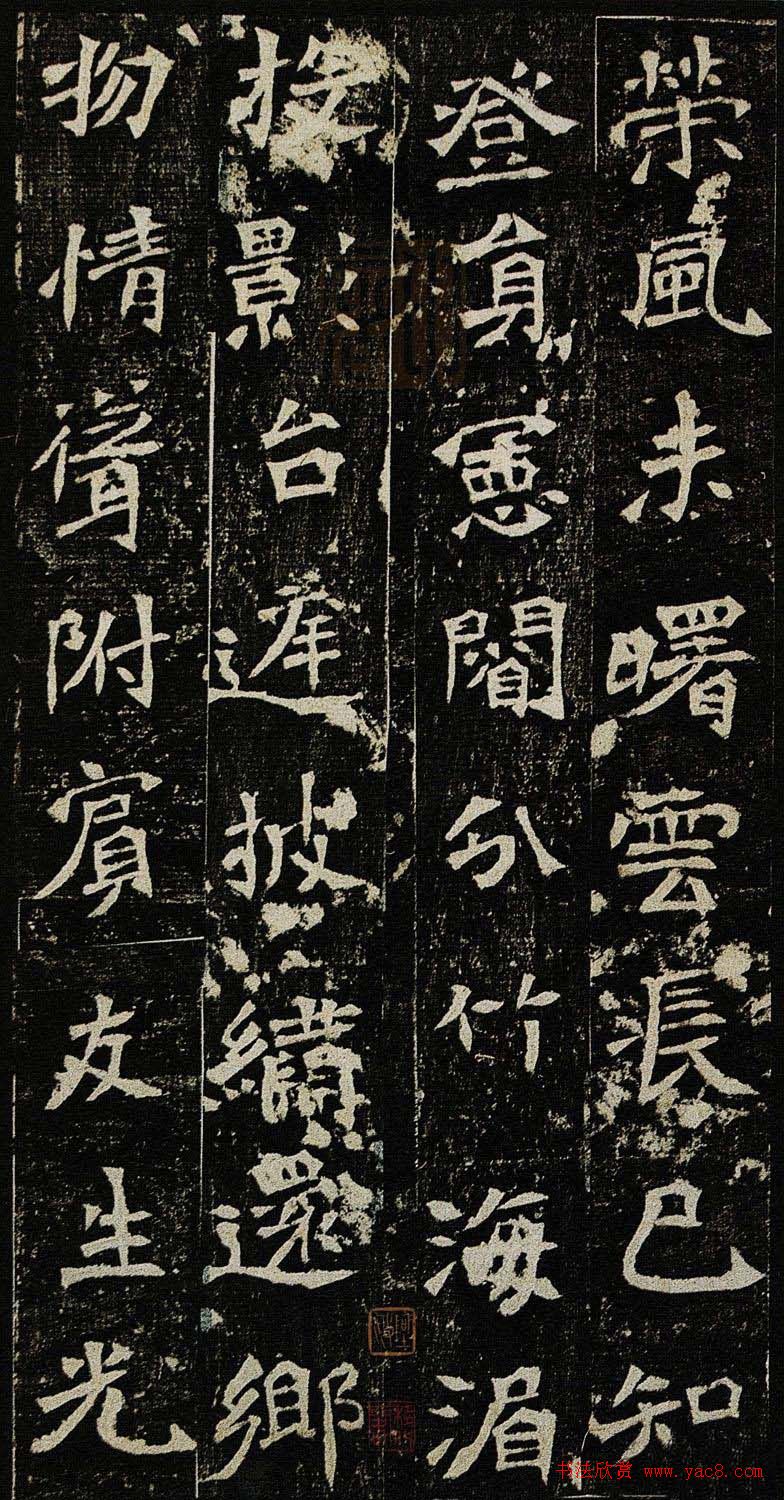 榮風未曙雲漲已知
登身憲分竹海湄
景台遲披繡還鄉
物情聳附賓友生光
书法欣赏 www.yac8.com